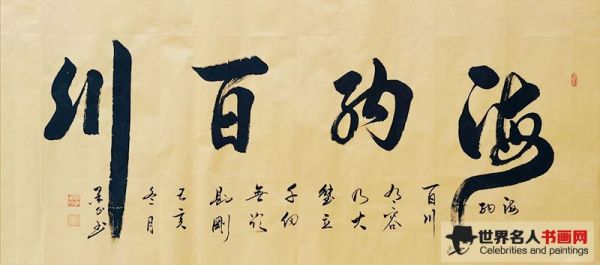 海納百川
海納
百川
有容
乃大
壁立
千仞
無欲
則剛
己亥
冬月
书
世界名人书画网
Celebrities and paintings